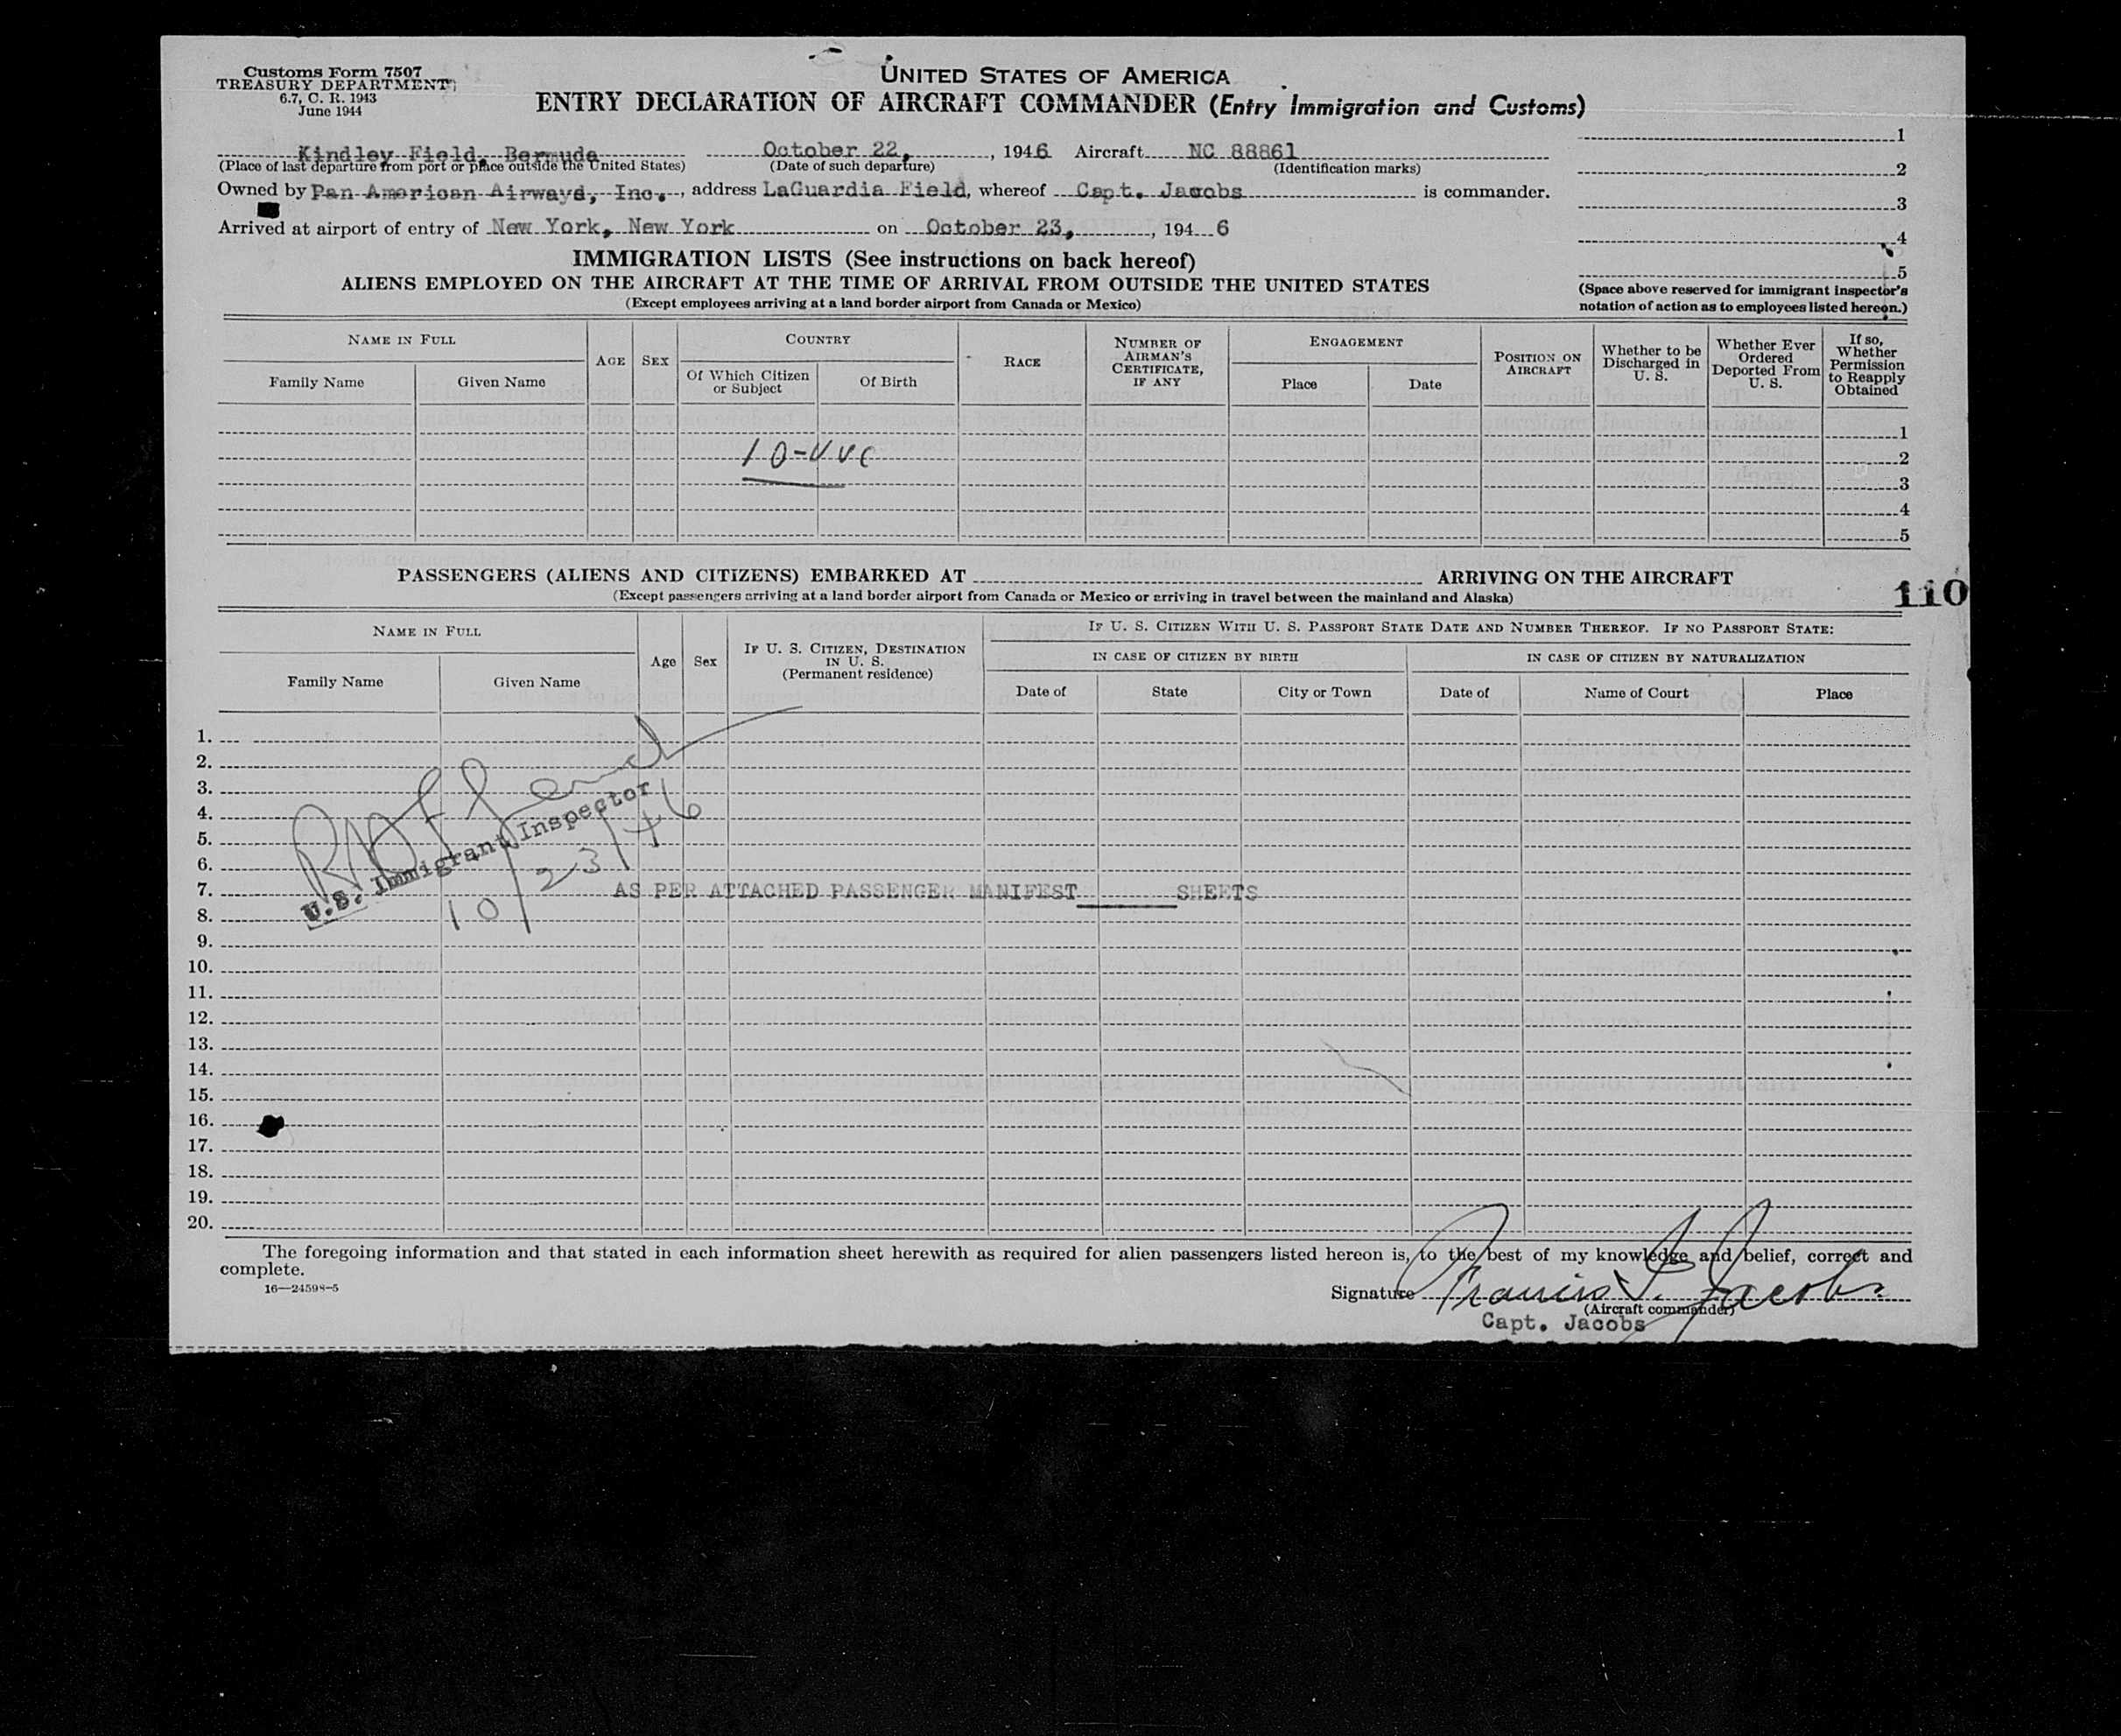 Customs Form 7507
TREASURY DEPARTMENT
6.7, C. R. 1943
June 1944
UNITED STATES OF AMERICA
ENTRY DECLARATION OF AIRCRAFT COMMANDER (Entry Immigration and Customs)
Kindley Field, Bermuda October 22, , 1946 Aircraft NC 88861
(Place of last departure from port or place outside the United States) (Date of such departure) (Identification marks)
Owned by Pan American Airways, Inc. , address LaGuardia Field, whereof Capt. Jacobs is commander.
Arrived at airport of entry of New York, New York on October 23, , 194 6
1
2
3
4
5
(Space above reserved for immigrant inspector's
notation of action as to employees listed hereon.)
IMMIGRATION LISTS (See instructions on back hereof)
ALIENS EMPLOYED ON THE AIRCRAFT AT THE TIME OF ARRIVAL FROM OUTSIDE THE UNITED STATES
(Except employees arriving at a land border airport from Canada or Mexico)
NAME IN FULL
Family Name Given Name
AGE SEX
COUNTRY
Of Which Citizen
or Subject
Of Birth
RACE
NUMBER OF
AIRMAN'S
CERTIFICATE,
IF ANY
ENGAGEMENT
Place Date
POSITION ON
AIRCRAFT
Whether to be
Discharged in
U. S.
Whether Ever
Ordered
Deported From
U. S.
If so,
Whether
Permission
to Reapply
Obtained
1
2
3
4
5
10-
PASSENGERS (ALIENS AND CITIZENS) EMBARKED AT ARRIVING ON THE AIRCRAFT
(Except passengers arriving at a land border airport from Canada or Mexico or arriving in travel between the mainland and Alaska)
110
NAME IN FULL
Family Name Given Name
Age Sex
IF U. S. CITIZEN, DESTINATION
IN U. S.
(Permanent residence)
IF U. S. CITIZEN WITH U. S. PASSPORT STATE DATE AND NUMBER THEREOF. IF NO PASSPORT STATE:
IN CASE OF CITIZEN BY BIRTH IN CASE OF CITIZEN BY NATURALIZATION
Date of State City or Town Date of Name of Court Place
1.
2.
3.
4.
5.
6.
7. AS PER ATTACHED PASSENGER MANIFEST SHEETS
8.
9.
10.
11.
12.
13.
14.
15.
16.
17.
18.
19.
20.
U.S. Immigrant Inspector
10/23/46
The foregoing information and that stated in each information sheet herewith as required for alien passengers listed hereon is, to the best of my knowledge and belief, correct and
complete.
16—24598-5
Signature Francis Jacobs
(Aircraft commander)
Capt. Jacobs